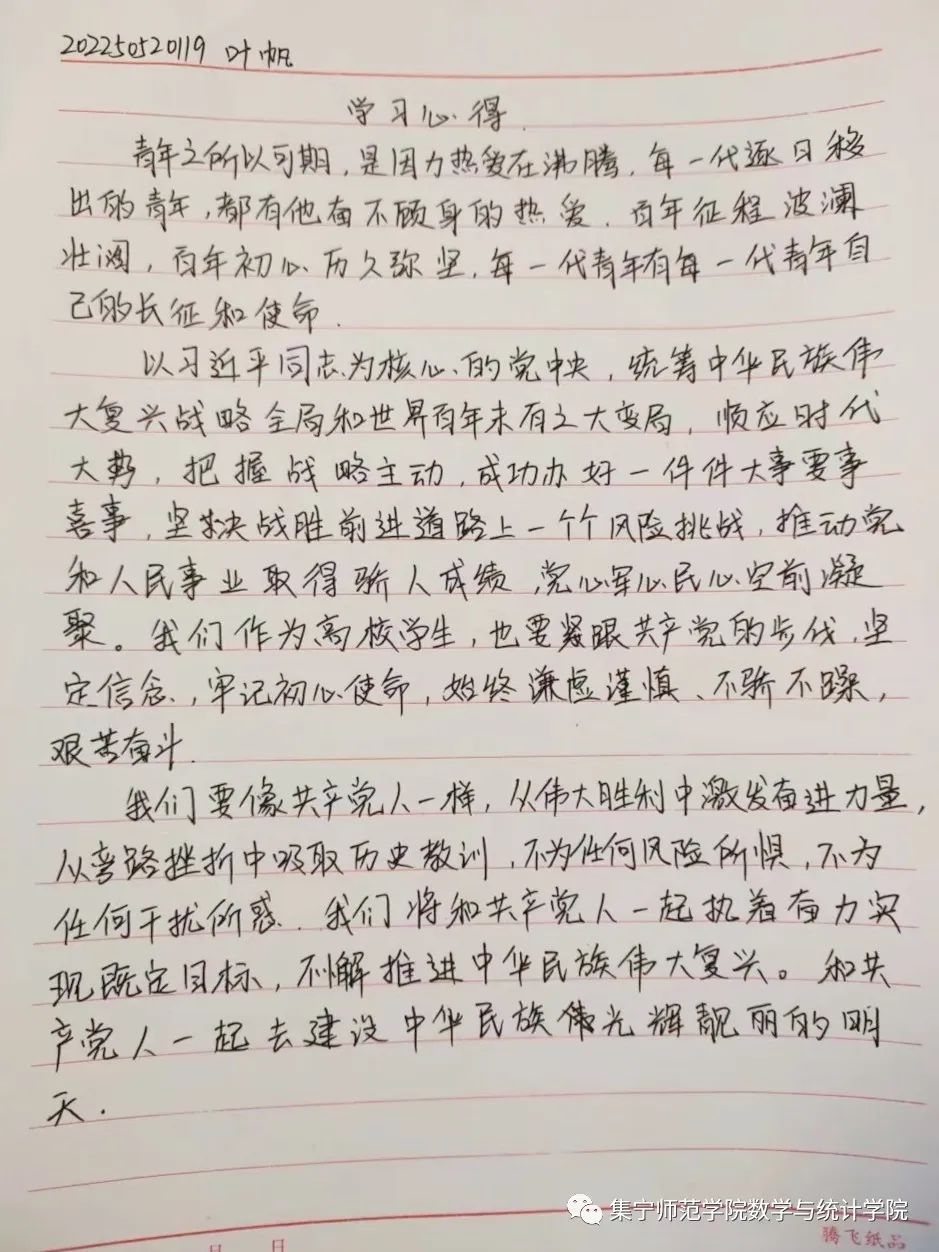 202250520119 叶帆
学习心得.
青年之所以可期，是因为热爱在沸腾，每一代逐日移
出的青年，都有他奋不顾身的热爱．百年征程波澜
壮阔，百年初心历久弥坚，每一代青年有每一代青年自
己的长征和使命．
以习近平同志为核心的党中央，统筹中华民族伟
大复兴战略全局和世界百年未有之大变局，顺应时代
大势，把握战略主动，成功办好一件件大事要事
喜事，坚决战胜前进道路上一个个风险挑战，推动党
和人民事业取得骄人成绩，党心军心民心空前凝
聚。我们作为高校学生，也要紧跟共产党的步伐．坚
定信念，牢记初心使命，始终谦虚谨慎、不骄不躁，
艰苦奋斗．
我们要像共产党人一样，从伟大胜利中激发奋进力量，
从弯路挫折中吸取历史教训，不为任何风险所惧，不为
任何干扰所惑．我们将和共产党人一起执着奋力实
现既定目标，不懈推进中华民族伟大复兴。和共
产党人一起去建设中华民族伟光辉靓丽的明
天．
集宁师范学院数学与统计学院
腾飞纸品
月 日